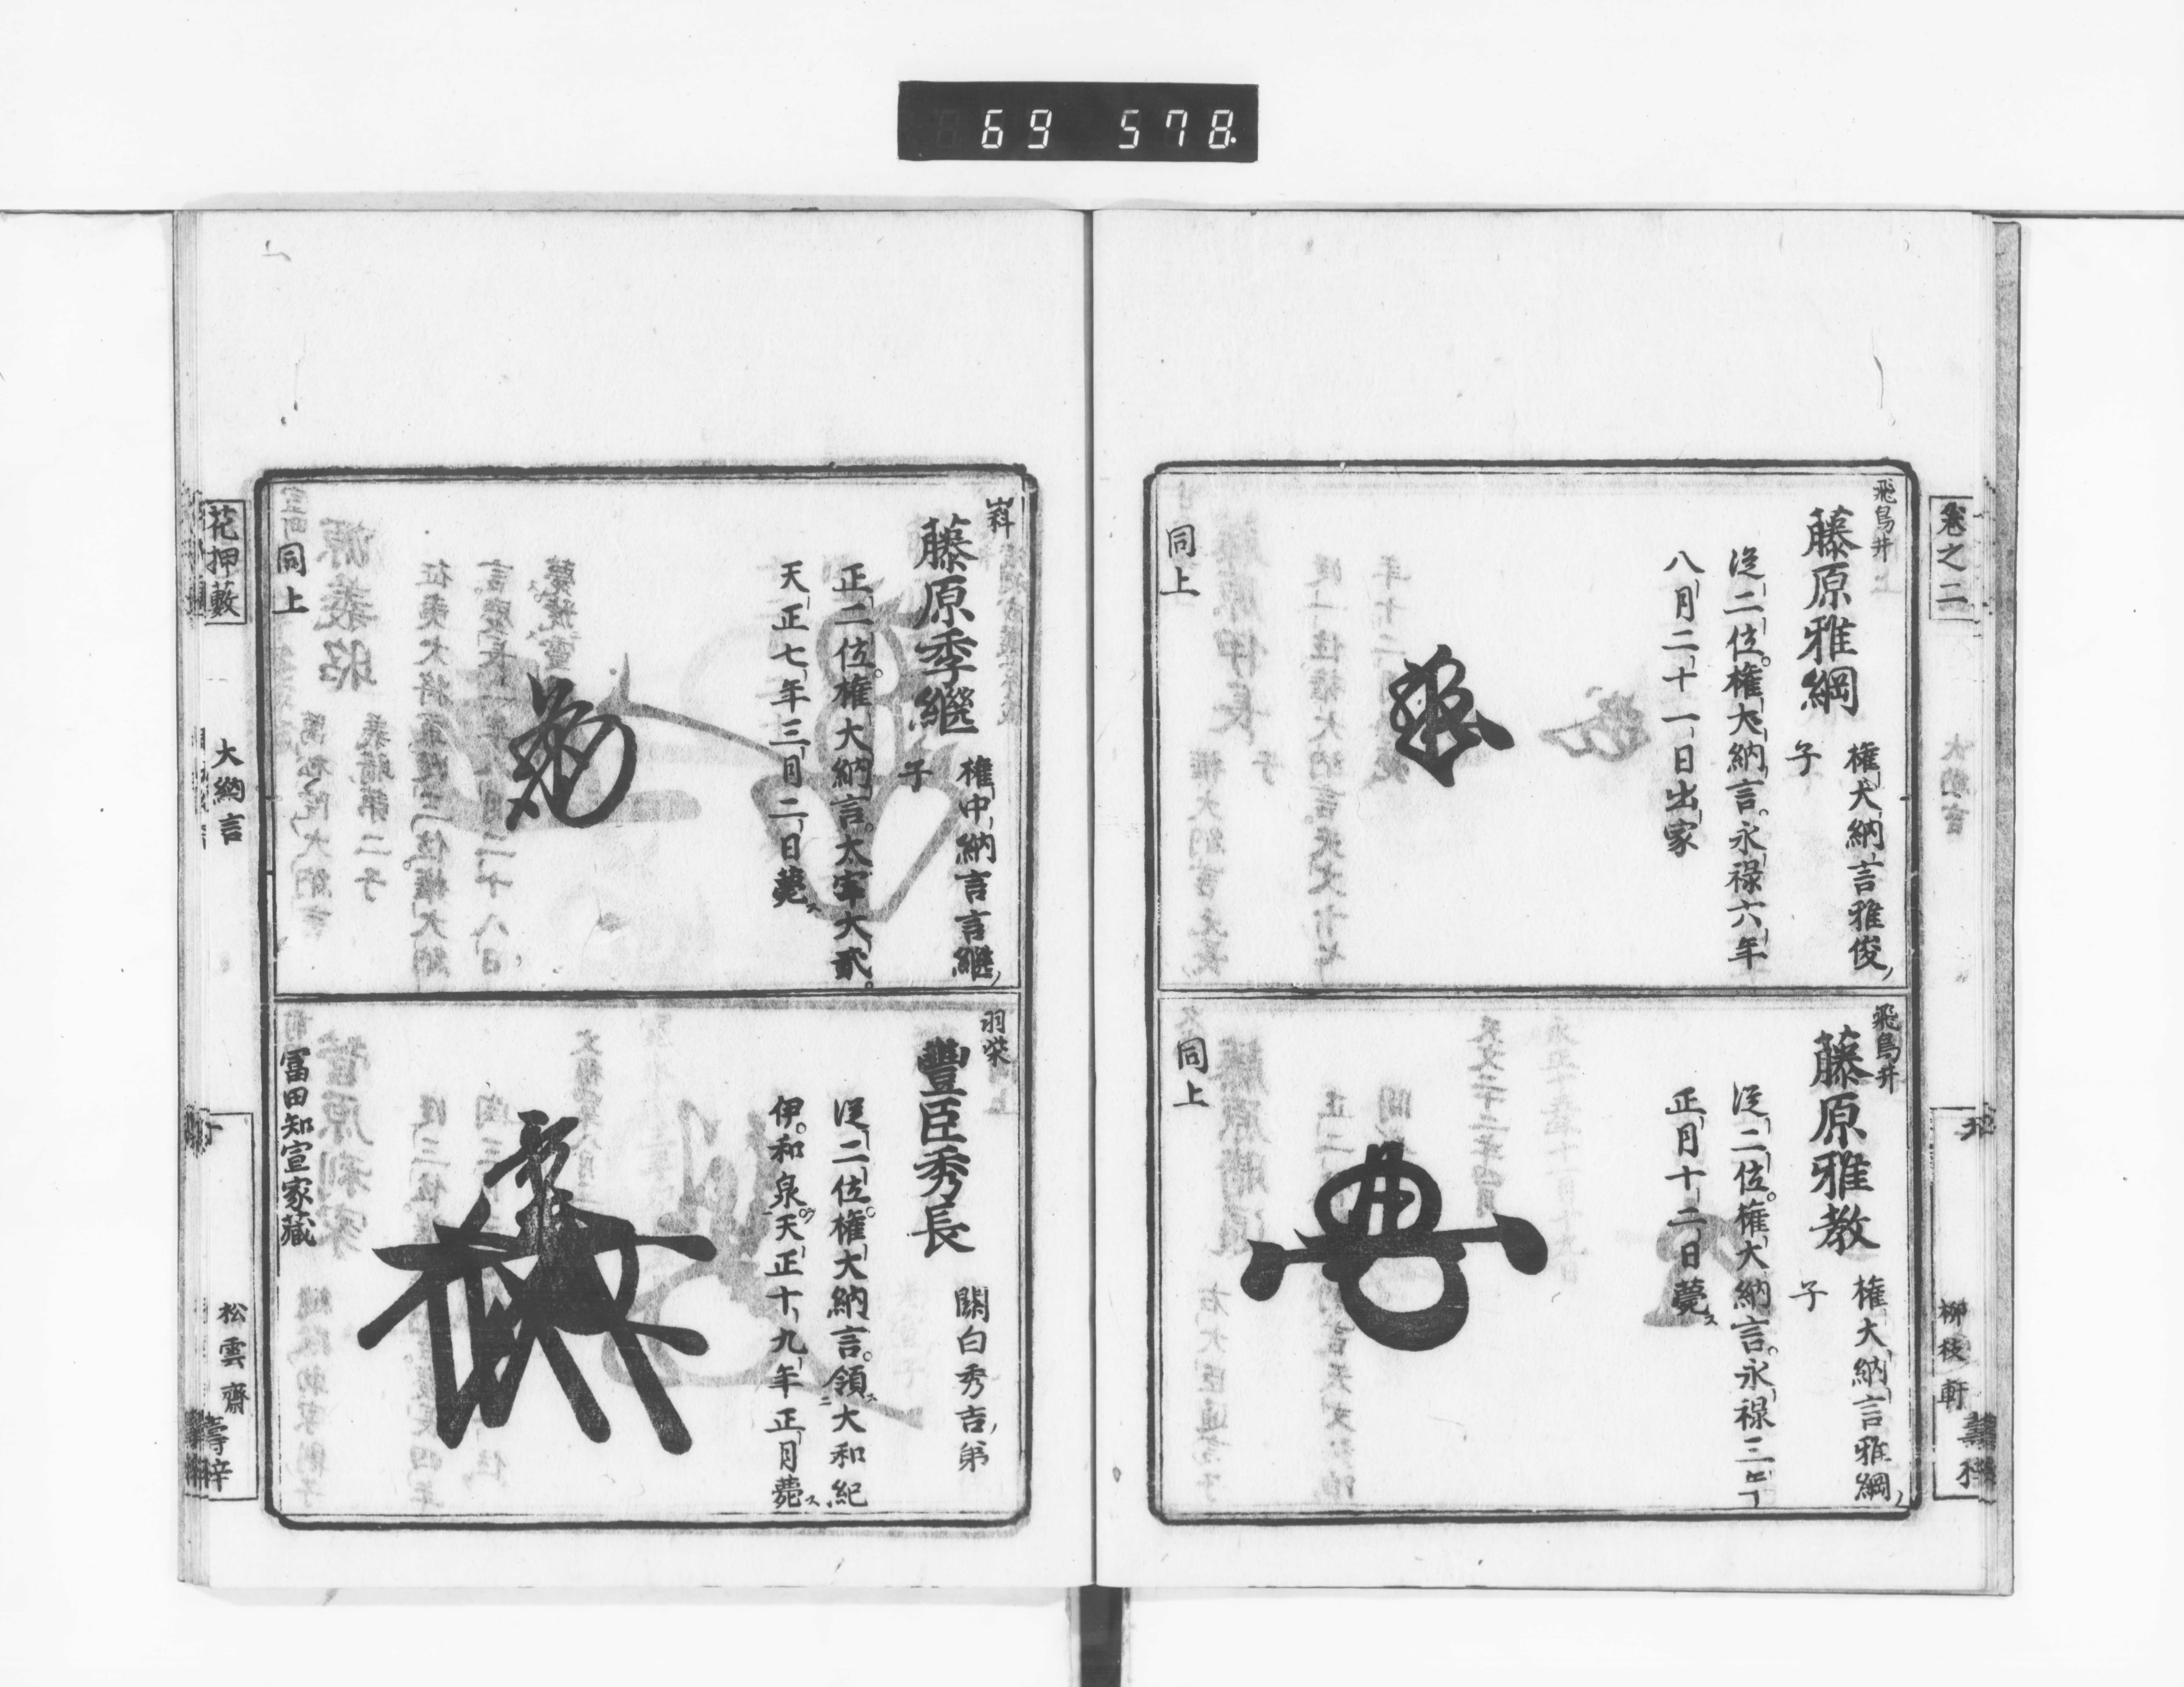 69 578.
卷之二
飛鳥井
藤原雅綱
權大納言雅俊
子
從二位。權大納言。永祿六年
八月二十一日出家
同上
飛鳥井
藤原雅教
權大納言雅綱
子
從二位。權大納言。永祿三年
正月十二日薨ス
同上
柳枝軒
藤原季繼
權中納言言繼
子
正二位。權大納言。太宰大貳。
天正七年三月二日薨ス
同上
羽柴
豐臣秀長
關白秀吉弟
從二位。權大納言。領ス大和紀
伊。和泉ヲ。天正十九年正月薨ス
冨田知宣家藏
花押藪
大納言
松雲齋
壽梓